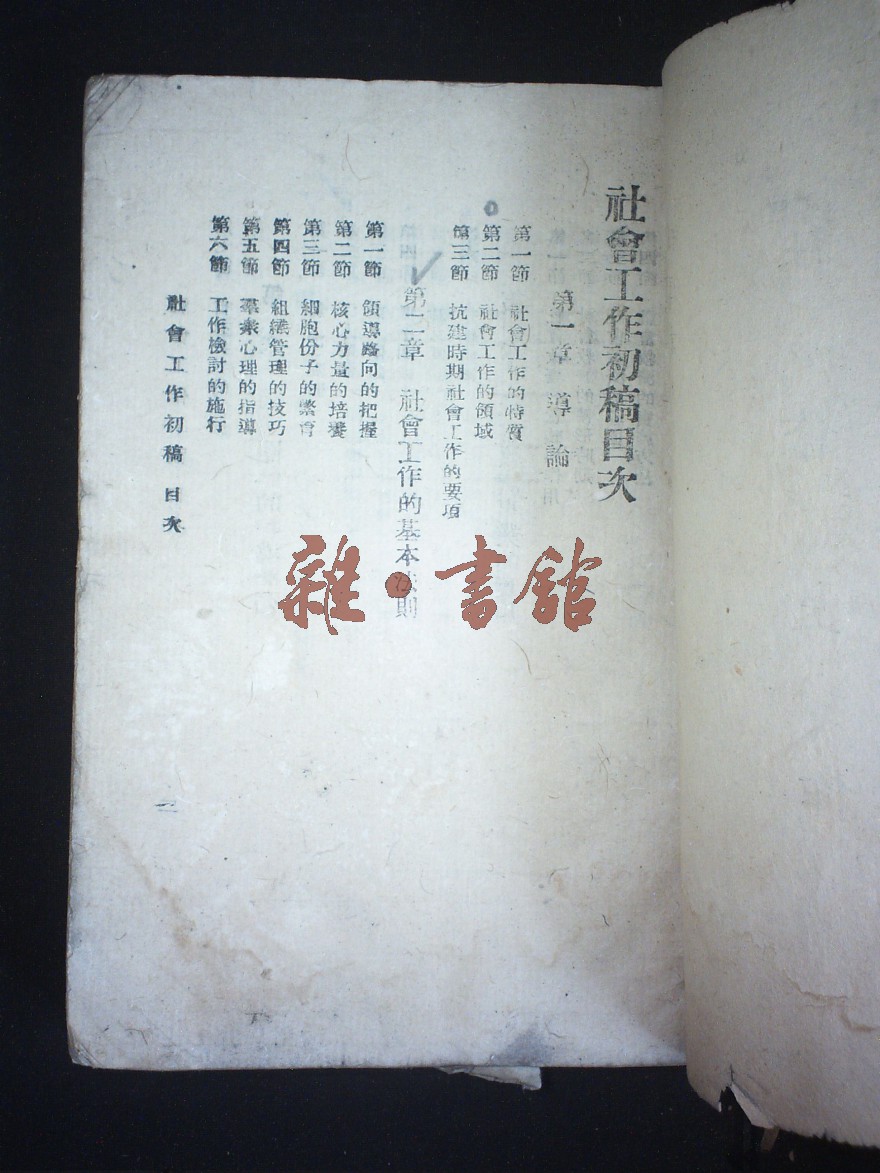 社會工作初稿目次
第一章 導論
第一節 社會工作的特質
第二節 社會工作的領域
第三節 抗建時期社會工作的要項
第二章 社會工作的基本法則
第一節 領導路向的把握
第二節 核心力量的培養
第三節 細胞份子的繁育
第四節 組織管理的技巧
第五節 羣衆心理的指導
第六節 工作檢討的施行
社會工作初稿 目次
一
雜·書館